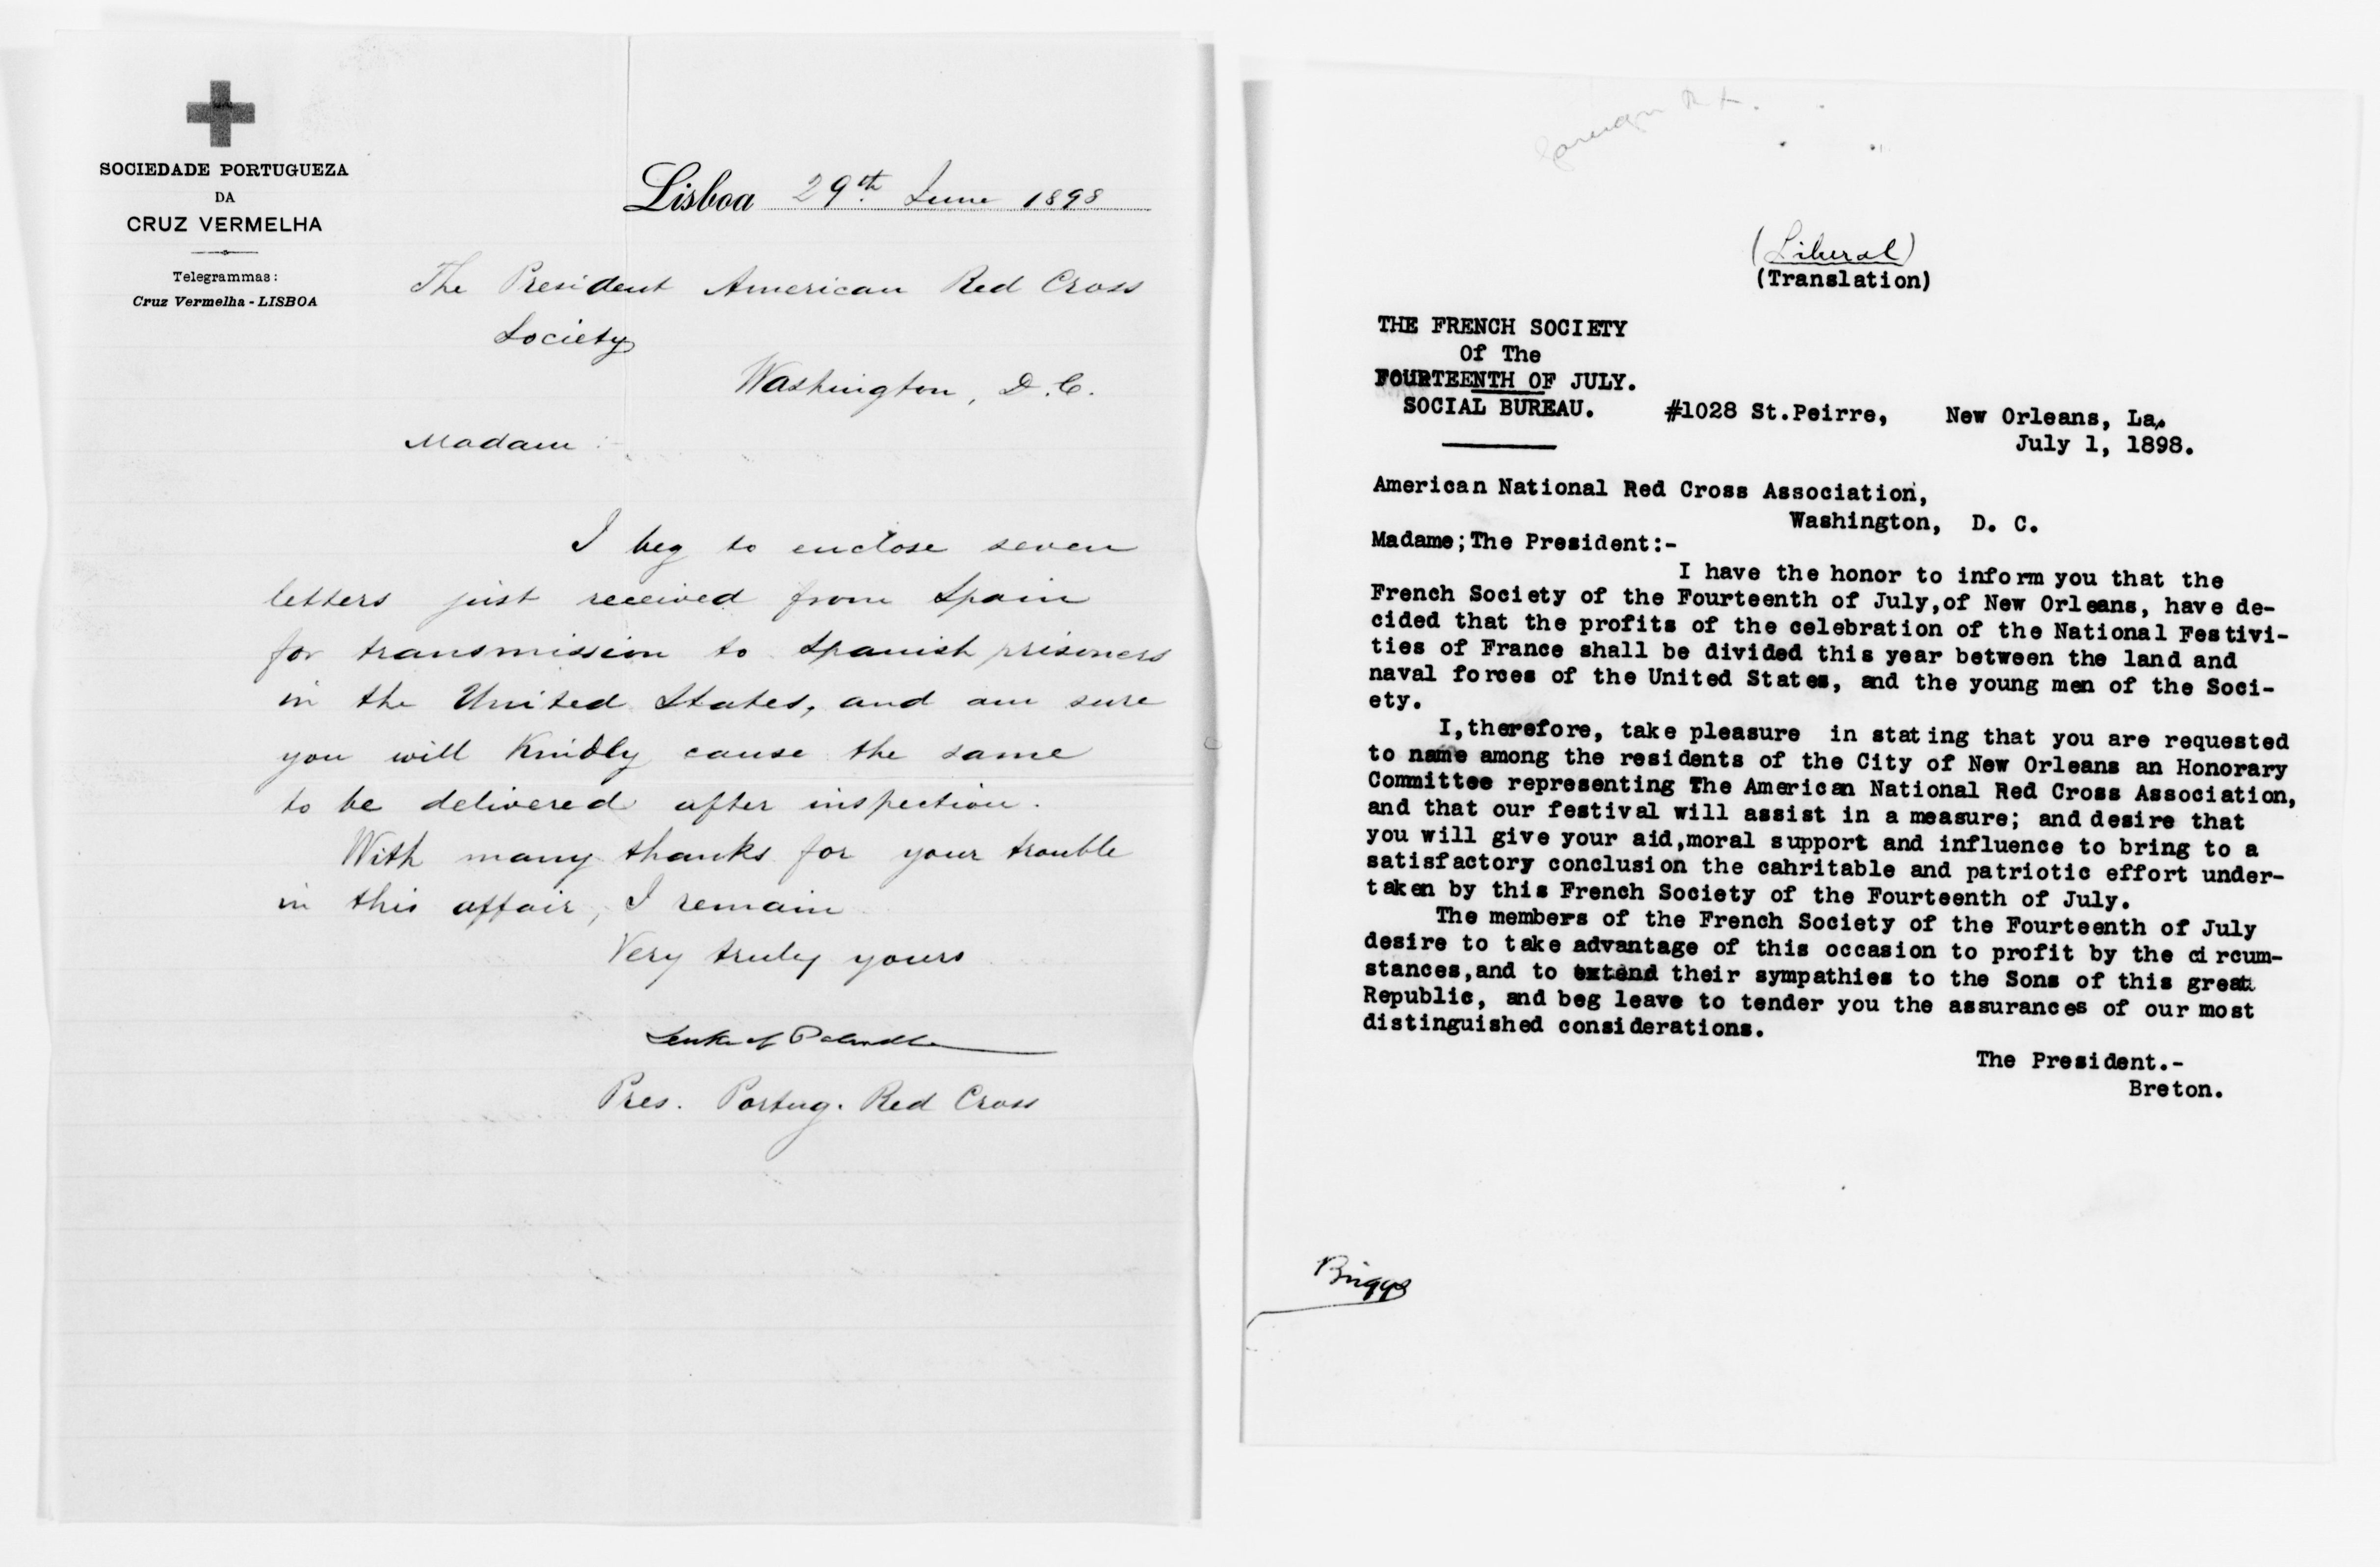 SOCIEDADE PORTUGUEZA
DA
CRUZ VERMELHA
Telegrammas:
Cruz Vermelha - LISBOA
Lisboa 29th. June 1898
The President American Red Cross
Society
Washington, D.C.
Madam :-
I beg to enclose seven
letters just received from Spain
for transmission to Spanish prisoners
in the United States, and am sure
you will kindly cause the same
to be delivered after inspection.
With many thanks for your trouble
in this affair, I remain
Very truly yours
Pres. Portug. Red Cross
(Liberal)
(Translation)
THE FRENCH SOCIETY
Of The
FOURTEENTH OF JULY.
SOCIAL BUREAU. #1028 St.Peirre, New Orleans, La.
July 1, 1898.
American National Red Cross Association,
Washington, D. C.
Madame;The President:-
I have the honor to inform you that the
French Society of the Fourteenth of July,of New Orleans, have de-
cided that the profits of the celebration of the National Festivi-
ties of France shall be divided this year between the land and
naval forces of the United States, and the young men of the Soci-
ety.
I,therefore, take pleasure in stating that you are requested
to name among the residents of the City of New Orleans an Honorary
Committee representing The American National Red Cross Association,
and that our festival will assist in a measure; and desire that
you will give your aid,moral support and influence to bring to a
satisfactory conclusion the cahritable and patriotic effort under-
taken by this French Society of the Fourteenth of July.
The members of the French Society of the Fourteenth of July
desire to take advantage of this occasion to profit by the circum-
stances,and to extend their sympathies to the Sons of this great
Republic, and beg leave to tender you the assurances of our most
distinguished considerations.
The President.-
Breton.
Briggs